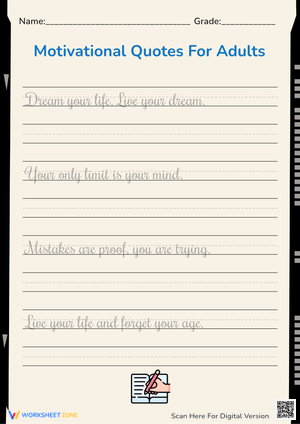 Name:______________________________ Grade:___________
Motivational Quotes For Adults
Dream your life. Live your dream.
Your only limit is your mind.
Mistakes are proof, you are trying.
Live your life and forget your age.
WORKSHEETZONE
Scan Here For Digital Version